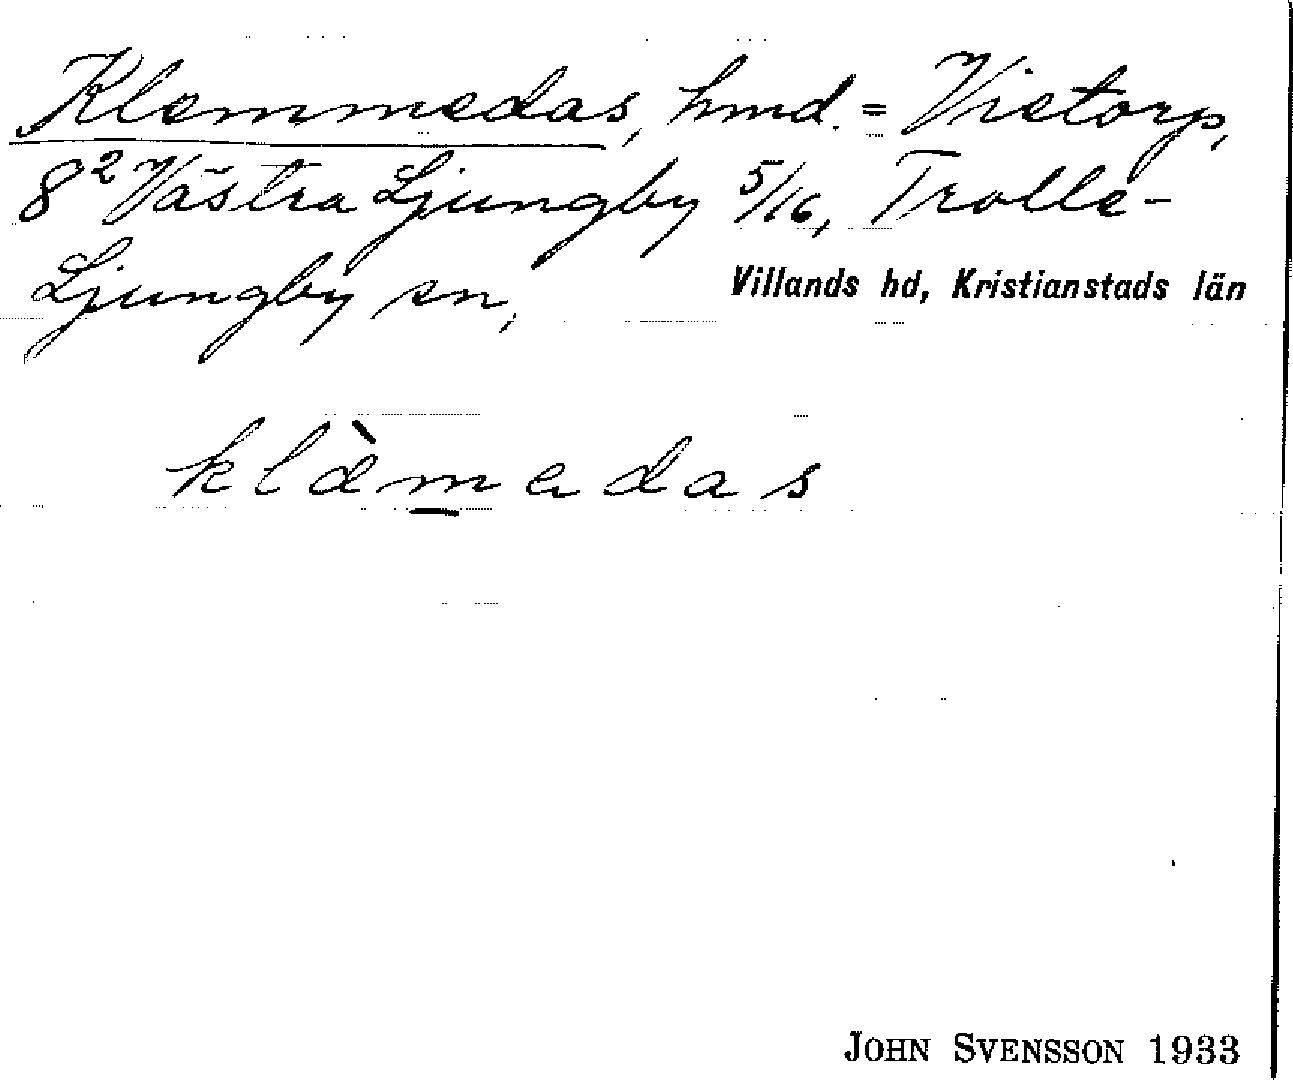 Klemmedas, hmd. = Vietorp,
8² Västra Ljungby 5/16, Trolle-
Ljungby sn,
Villands hd, Kristianstads län
klàmedas
JOHN SVENSSON 1933